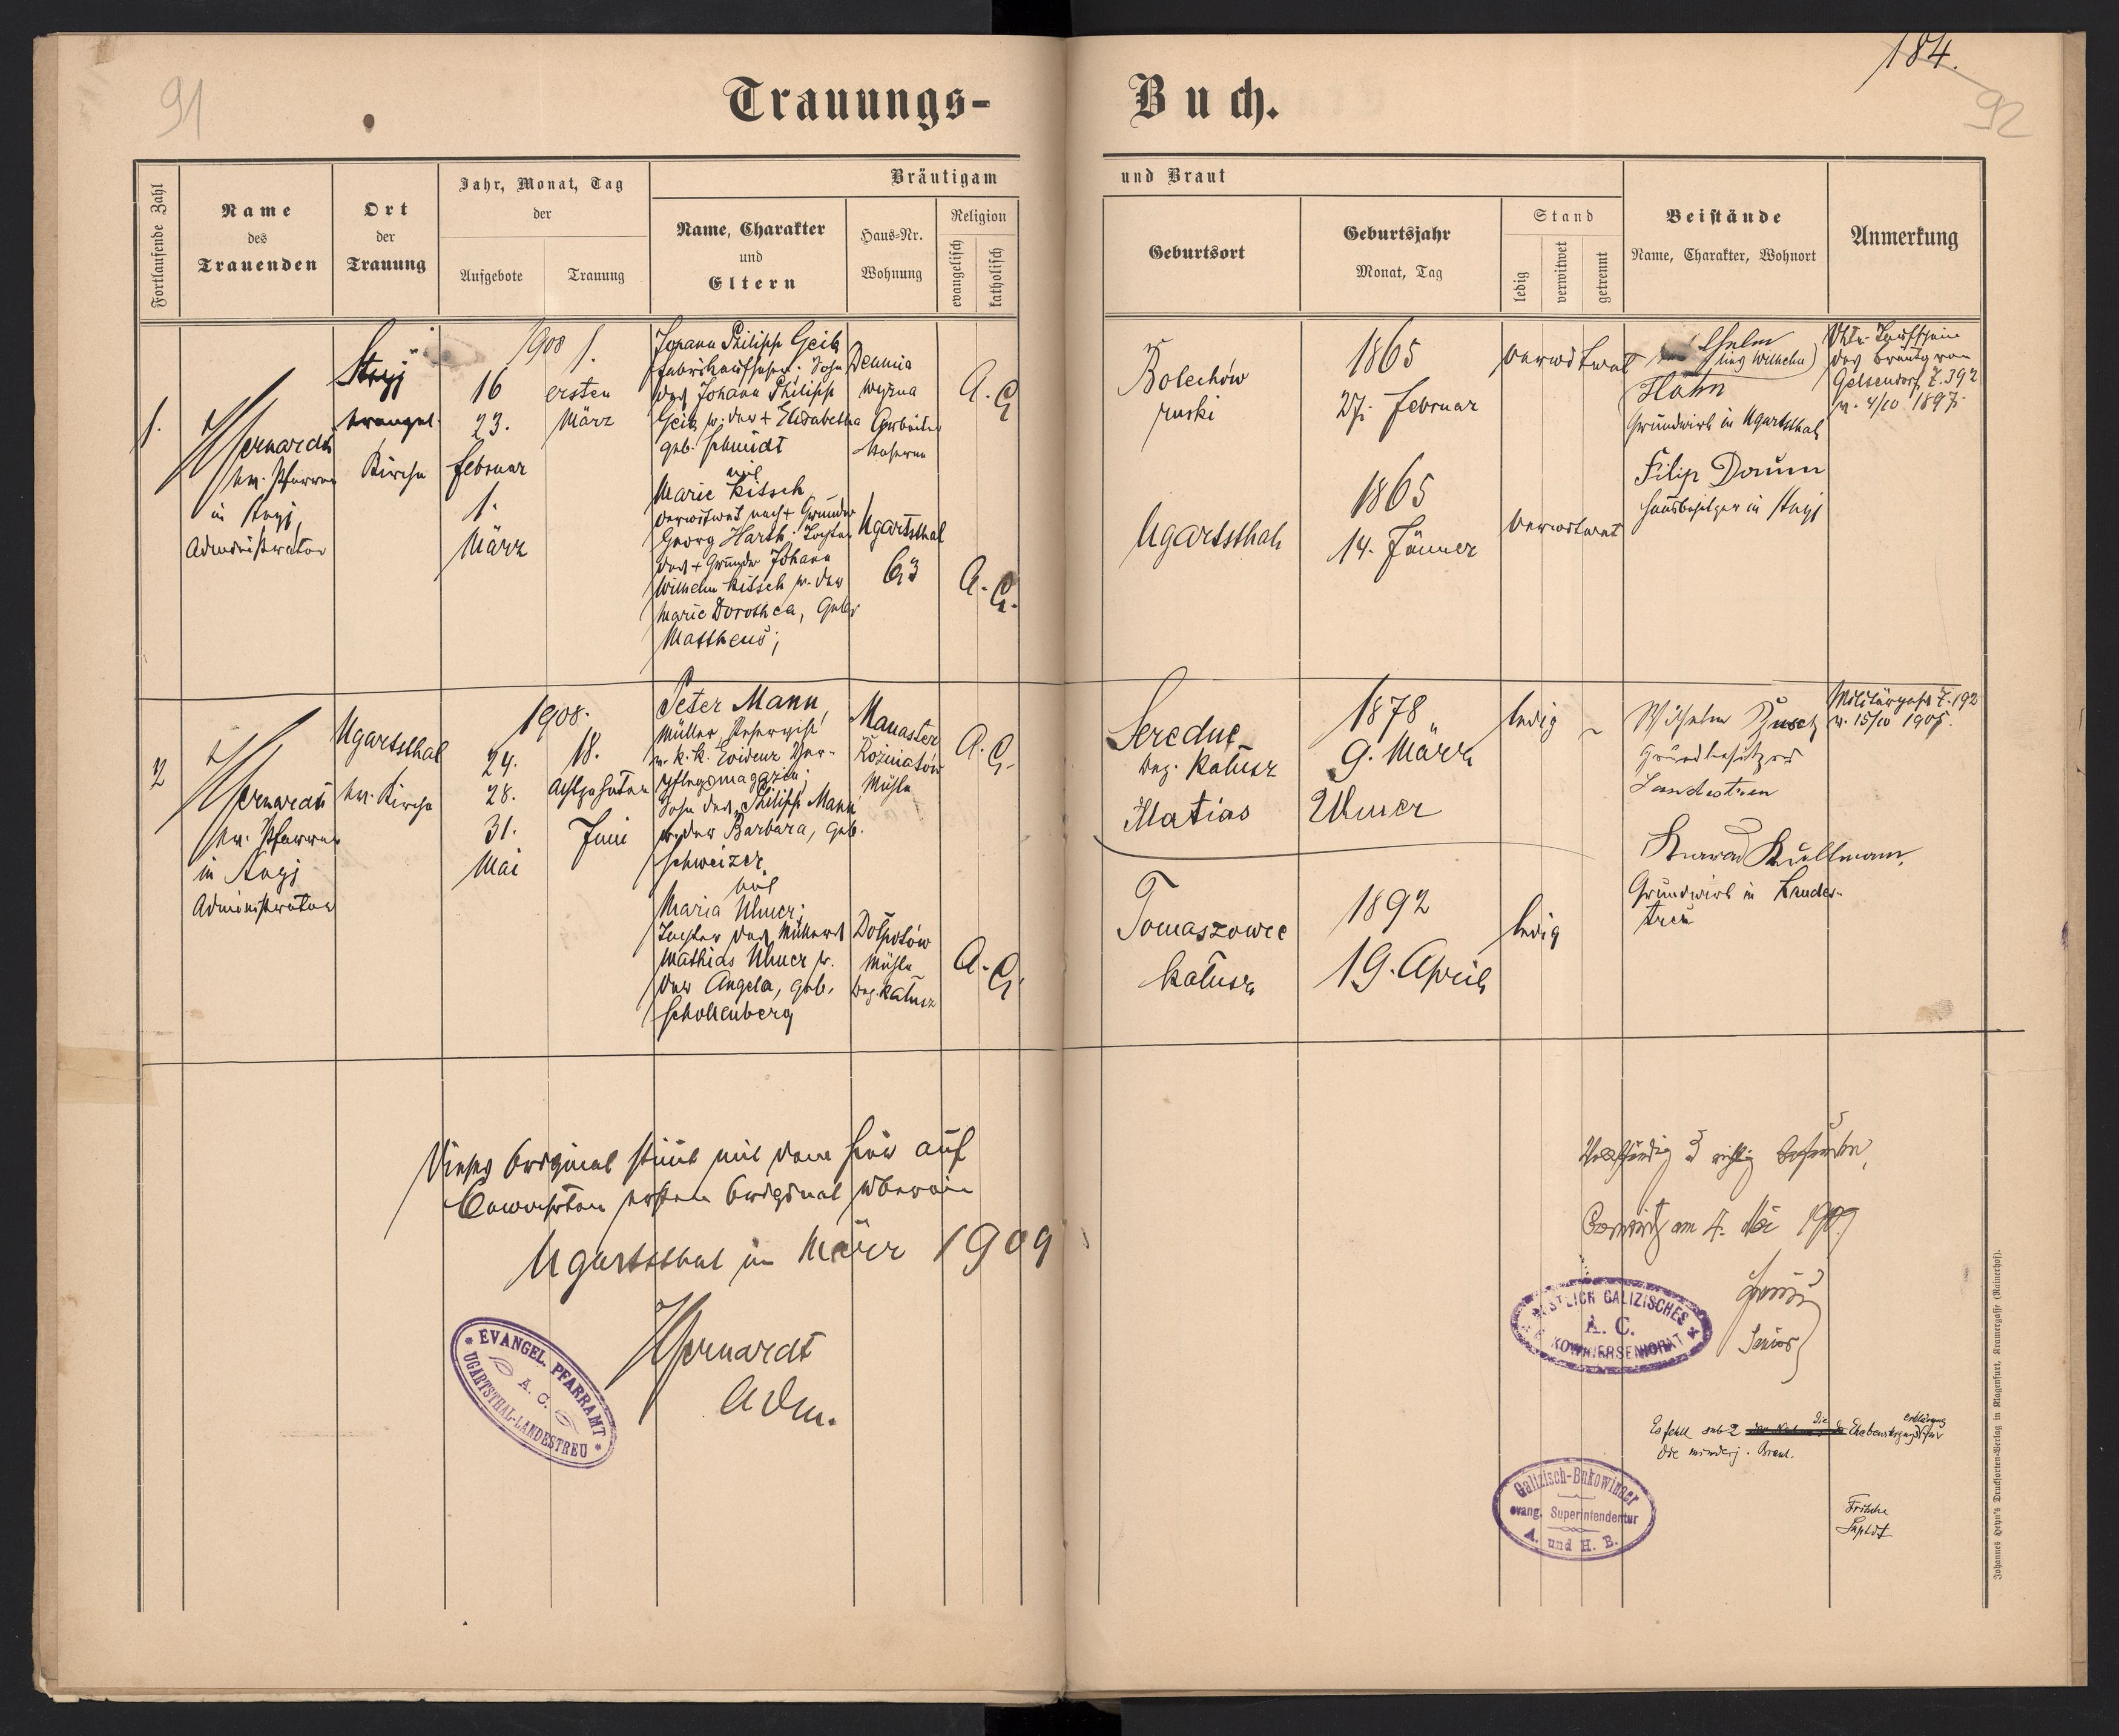 91
184.
92
Trauungs-Buch.
Fortlaufende Zahl
Name
des
Trauenden
Ort
der
Trauung
Jahr, Monat, Tag
der
Aufgebote
Trauung
Bräutigam
und Braut
Name, Charakter
und
Eltern
Haus-Nr.
Wohnung
Religion
evangelisch
katholisch
Geburtsort
Geburtsjahr
Monat, Tag
Stand
ledig
verwitwet
getrennt
Beistände
Name, Charakter, Wohnort
Anmerkung
1.
ev. Pfarrer
in Stryj,
Administrator
Stryj
evangel.
Kirche
1908
16
23.
Februar
1.
März
1.
ersten
März
Johann Philipp Geib
Sohn
des Johann Philipp
Geib u. der + Elisabetha
geb. Schmidt
mit
Marie Kitsch
verwitwet nach + Grundw
Georg Harth. Tochter
des + Grundw Johann
Wilhelm Kitsch u. der
Marie Dorothea, geb.
Mattheus;
Demnia
wyżna
Arbeiter
A. C.
Ugartsthal
63
A. C.
Bolechów
ruski
1865
27. Februar
verwitwet
Ugartsthal
1865
14. Jänner
verwitwet
Wilhelm
Hahn
Grundwirt in Ugartsthal
Filip Daum
Hausbesitzer in Stryj
Taufschein
des Bräutigam
Gelsendorf Z. 392
v. 4/10 1897.
2
ev. Pfarrer
in Stryj
Administrator
Ugartsthal
ev. Kirche
1908.
24.
28.
31.
Mai
18.
Achtzehnten
Juni
Peter Mann,
Müller, Reservist
k. k. Evidenz Ver-
pflegsmagazin;
Sohn des Philipp Mann
u. der Barbara, geb.
Schweizer,
mit
Maria Ulmer;
Tochter des Müllers
Mathias Ulmer u.
der Angela, geb.
Schollenberg
Manaster
Rożniatów
Mühle
A. C.
Dołpotów
Mühle
bez. Kałusz
A. C.
Seredne
bez. Kałusz
1878
9. März
ledig
Matias Ulmer
Tomaszowce
Kałusz
1892
19. April
ledig
Wilhelm
Grundbesitzer
Landestreu
Konrad Kullmann,
Grundwirt in Landes-
treu
Militärpass Z. 192
v. 15/10 1905.
Dieses Original stimmt mit dem hier auf
bewahrten ersten Original überein
Ugartsthal im März 1909
Adm.
EVANGEL. PFARRAMT
A. C.
UGARTSTHAL-LANDESTREU
Vollständig & richtig befunden,
am 4. Mai 1909
Senior
ÖSTLICH GALIZISCHES
A. C.
Es fehlt sub 2 die
für
die minderj. Braut.
Galizisch-Bukowinaer
evang. Superintendentur
A. und H. B.
Fritsche
Suptdt
Johannes Heyn's Drucksorten-Verlag in Klagenfurt, Kramergasse (Rainerhof).